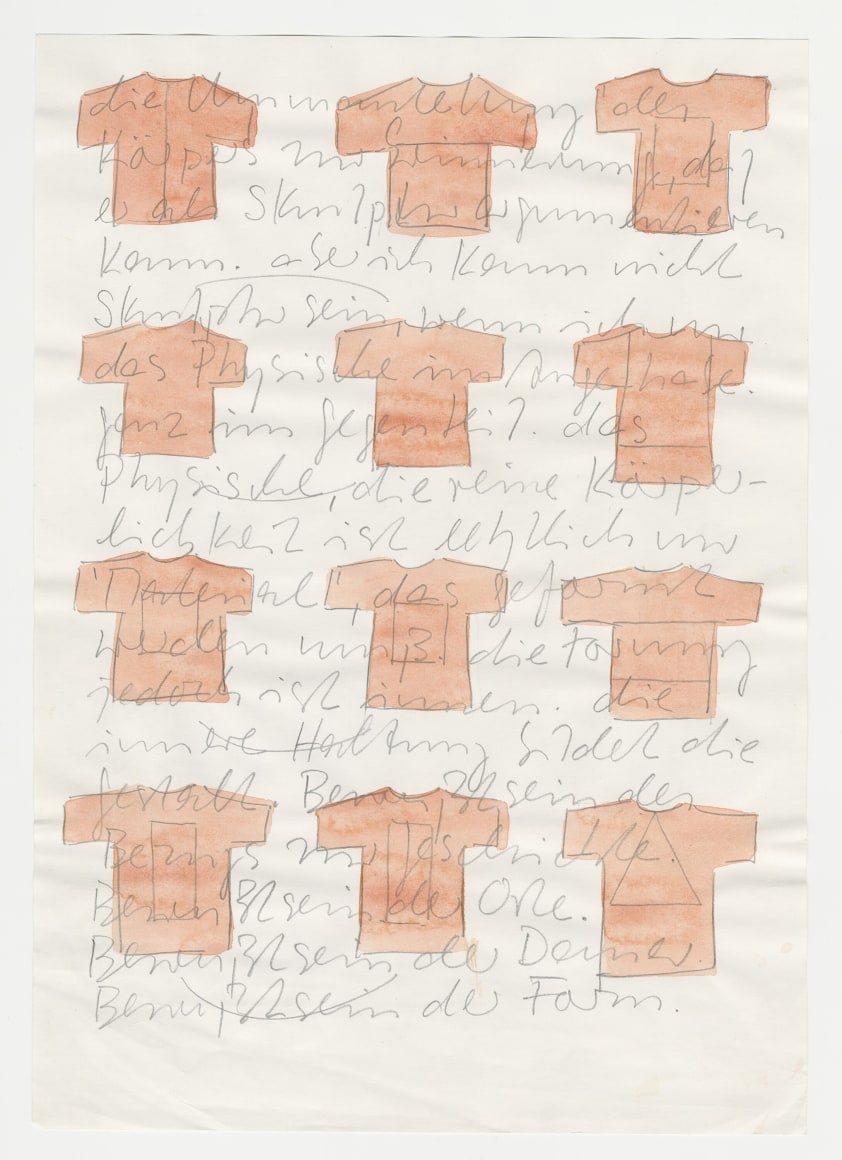 die Ummantelung des
Körpers zur Erinnerung, daß
er als Skulptur argumentieren
kann. aber ich kann nicht
Skulptur sein, wenn ich nur
das Physische im Auge habe.
ganz im gegenteil. das
Physische, die reine Körper-
lichkeit ist letztlich nur
'Material', das geformt
werden muß. die Formung
jedoch ist innen. die
innere Haltung bildet die
gestalt. Bewußtsein des
Bezugs zur geschichte.
Bewußtsein der Orte.
Bewußtsein der Dauer.
Bewußtsein der Form.